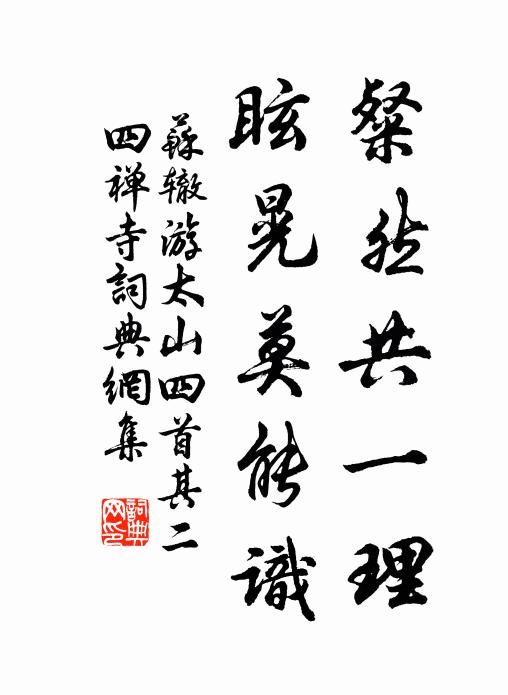 粲然共一理
眩晃莫能識
蘇辙游太山四首其二
四禅寺詞典網集
詞典网印